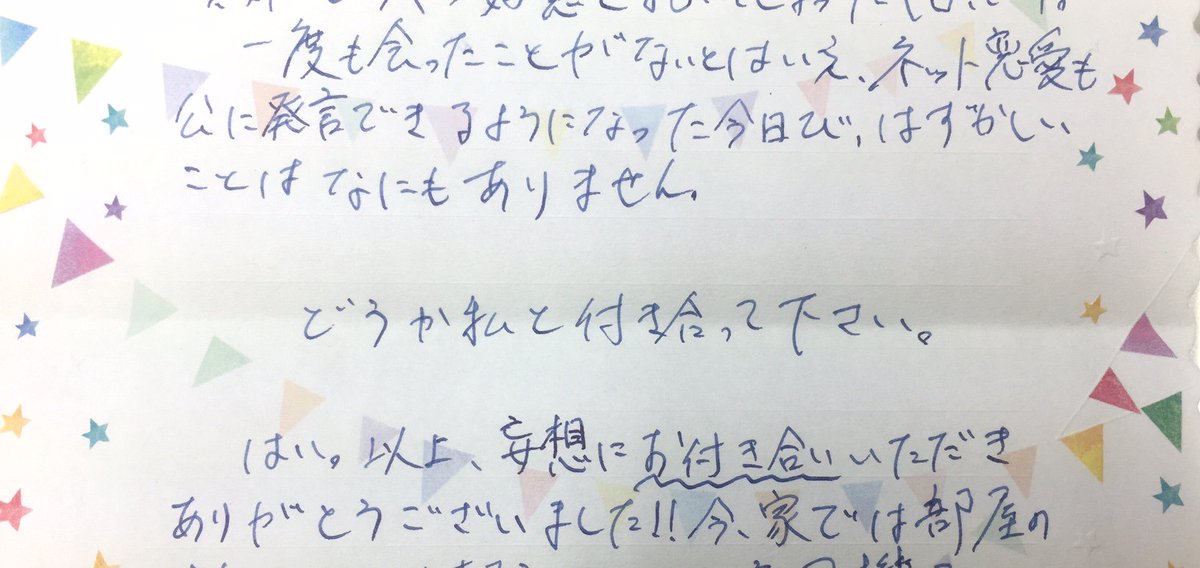 一度も会ったことがないとはいえ、ネット恋愛も
公に発言できるようになった今日び、はずかしい
ことはなにもありません。
どうか私と付き合って下さい。
はい。以上、妄想にお付き合いいただき
ありがとうございました!!今、家では部屋の